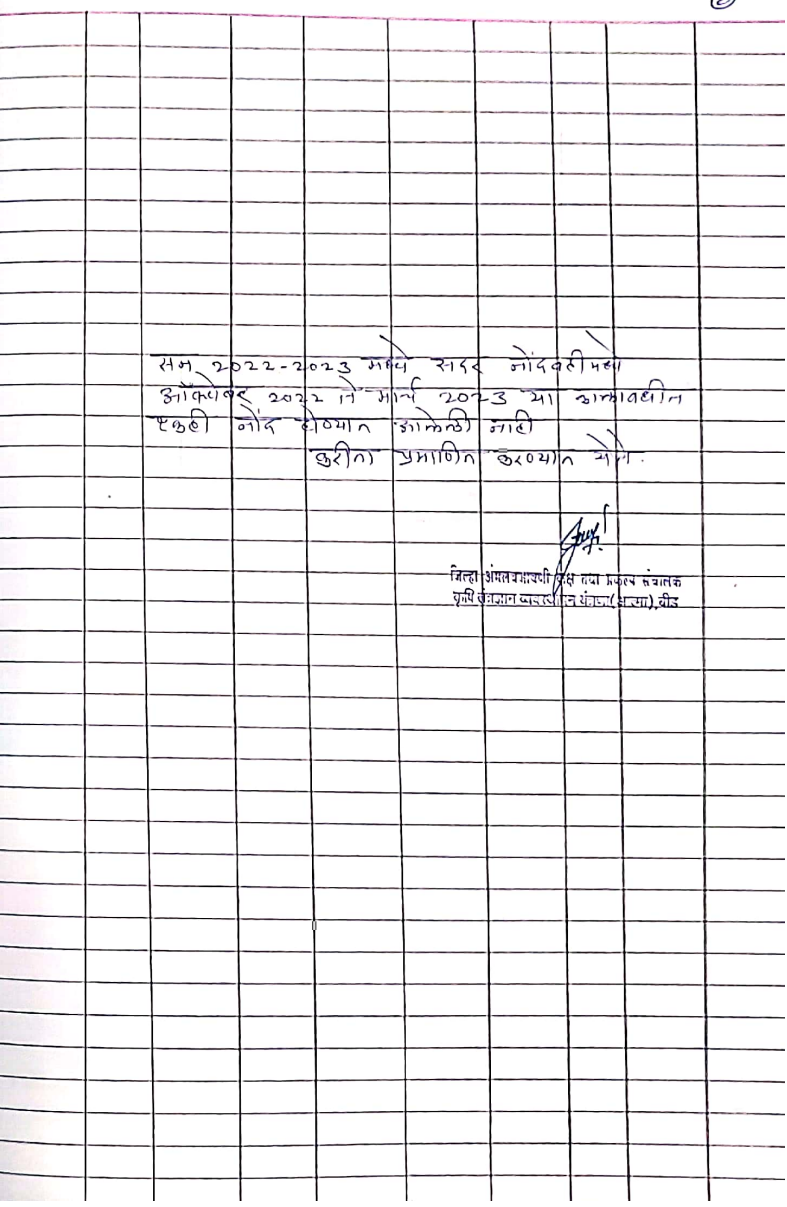 सन 2022-2023 मध्ये सदर नोंदवहीमध्ये
ऑक्टोबर 2022 ते मार्च 2023 या कालावधीत
एकही नोंद होण्यात आलेली नाही
करीता प्रमाणित करण्यात येते.
जिल्हा अंमलबजावणी कक्ष तथा प्रकल्प संचालक
कृषि तंत्रज्ञान व्यवस्थापन यंत्रणा (आत्मा), बीड